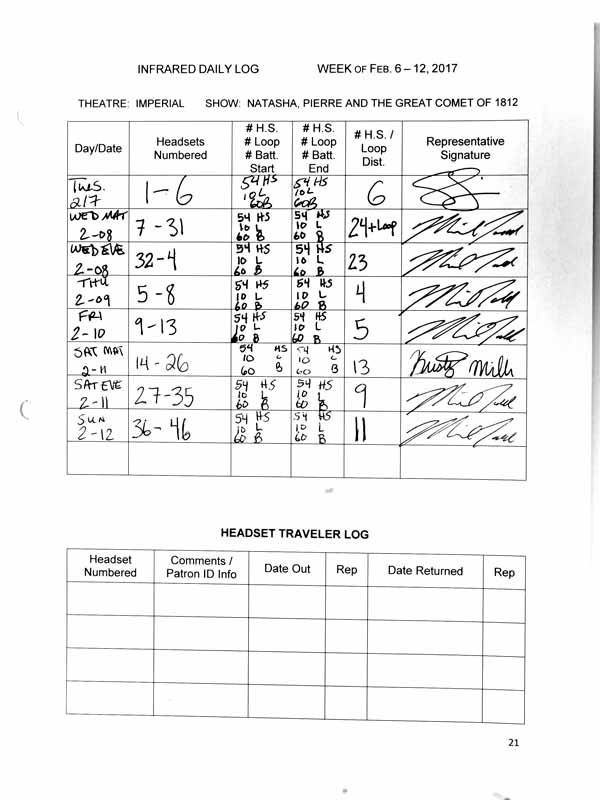 INFRARED DAILY LOG WEEK OF FEB. 6 – 12, 2017
THEATRE: IMPERIAL SHOW: NATASHA, PIERRE AND THE GREAT COMET OF 1812
Day/Date Headsets Numbered # H.S. # Loop # Batt. Start # H.S. # Loop # Batt. End # H.S. / Loop Dist. Representative Signature
TUES. 2/7 1-6 54 HS 10 L 60 B 54 HS 10 L 60 B 6
WED MAT 2-08 7-31 54 HS 10 L 60 B 54 HS 10 L 60 B 24+Loop
WED EVE 2-08 32-4 54 HS 10 L 60 B 54 HS 10 L 60 B 23
THU 2-09 5-8 54 HS 10 L 60 B 54 HS 10 L 60 B 4
FRI 2-10 9-13 54 HS 10 L 60 B 54 HS 10 L 60 B 5
SAT MAT 2-11 14-26 54 HS 10 L 60 B 54 HS 10 L 60 B 13
SAT EVE 2-11 27-35 54 HS 10 L 60 B 54 HS 10 L 60 B 9
SUN 2-12 36-46 54 HS 10 L 60 B 54 HS 10 L 60 B 11
HEADSET TRAVELER LOG
Headset Numbered Comments / Patron ID Info Date Out Rep Date Returned Rep
21